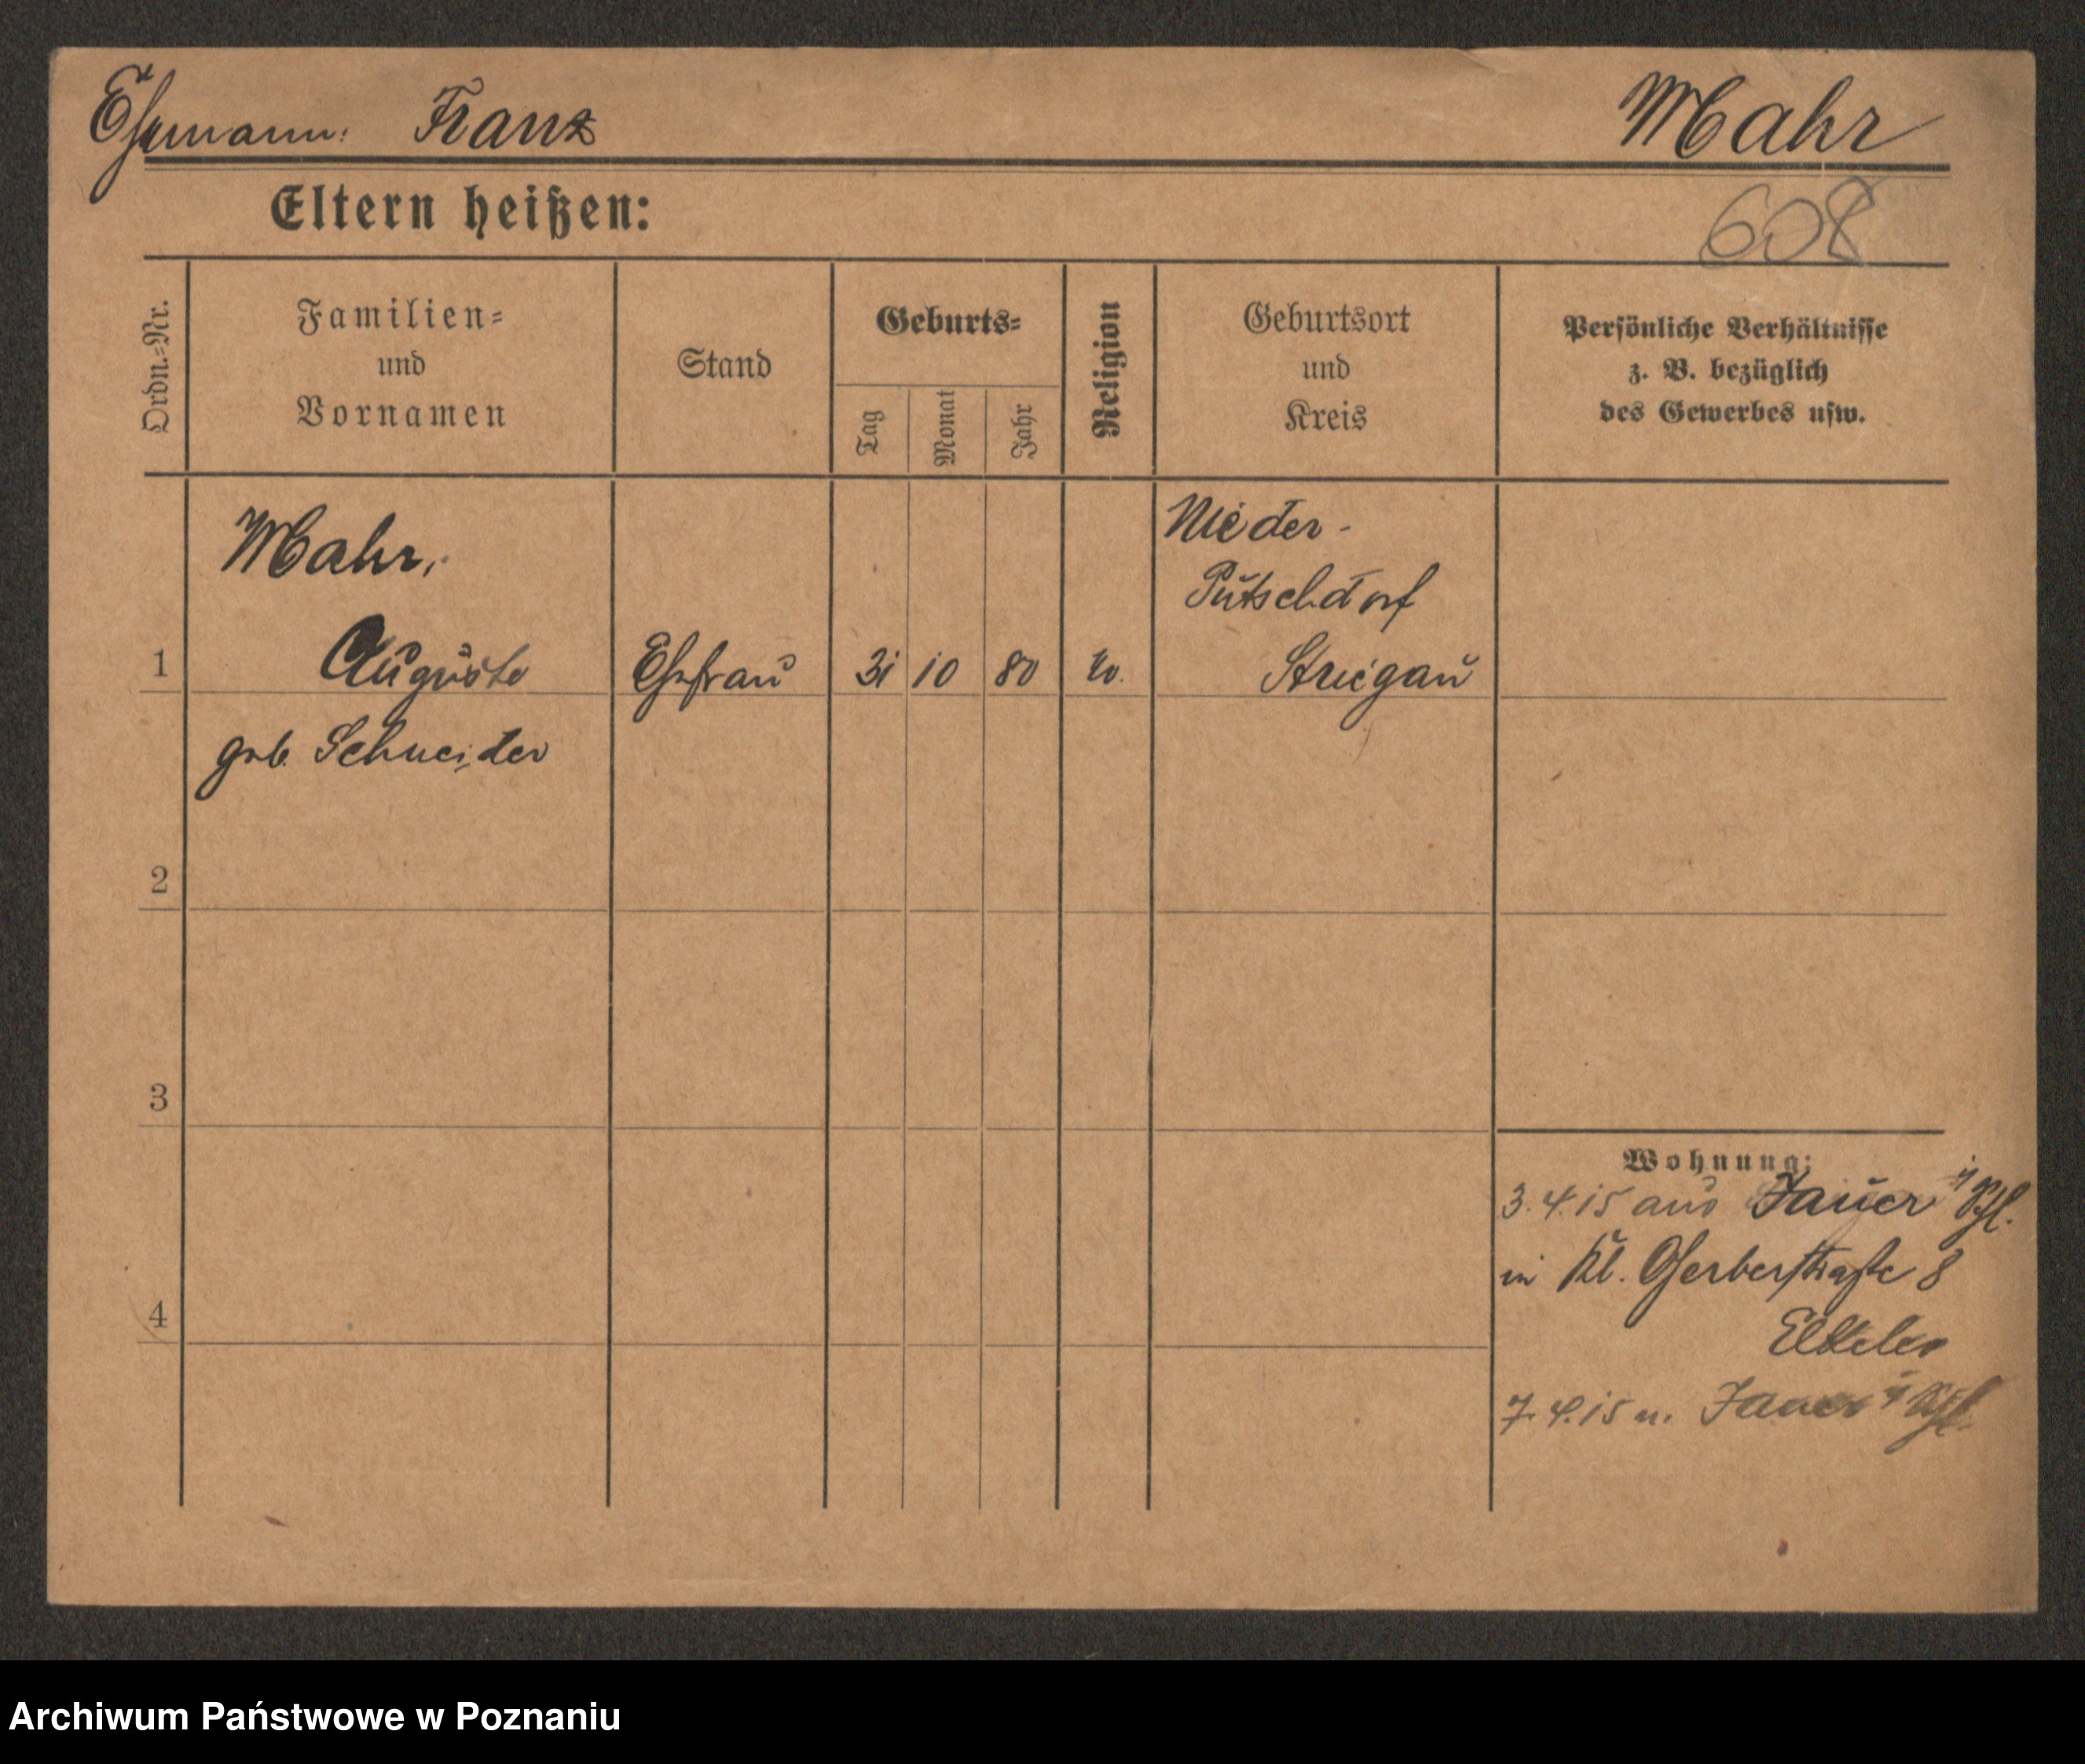 Ehemann: Franz Mahr
Eltern heißen: 608
Ordn.-Nr.
Familien-
und
Vornamen
Stand
Geburts-
Tag
Monat
Jahr
Religion
Geburtsort
und
Kreis
Persönliche Verhältnisse
z. B. bezüglich
des Gewerbes usw.
Mahr,
Auguste
geb. Schneider
1
Ehefrau
31 10 80
Nieder-
Pütschdorf
Striegau
2
3
4
Wohnung:
3.4.15 aus Jauer i/Schl.
in Kl. Gerberstraße 8
7.4.15 n. Jauer i/Schl.
Archiwum Państwowe w Poznaniu